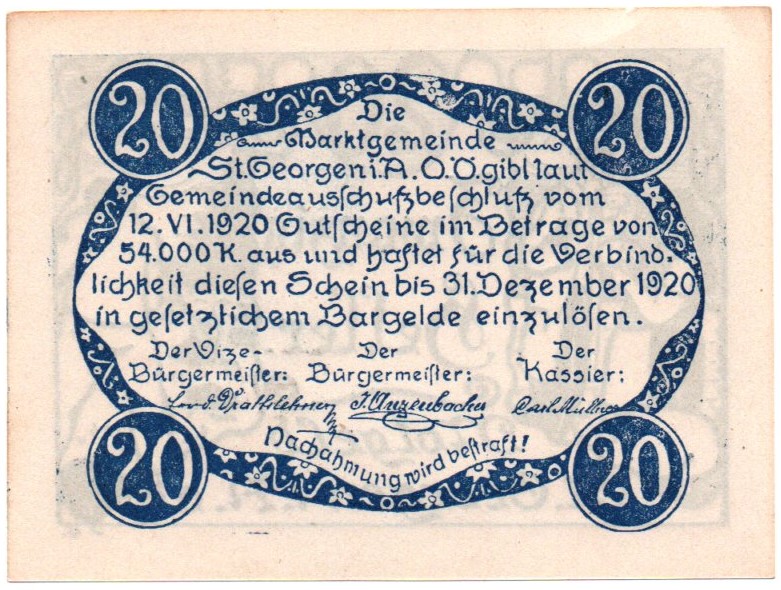 20 20
Die
Marktgemeinde
St. Georgen i. A. O. Ö. gibt laut
Gemeindeausschußbeschluß vom
12. VI. 1920 Gutscheine im Betrage von
54.000 K. aus und haftet für die Verbind-
lichkeit diesen Schein bis 31. Dezember 1920
in gesetzlichem Bargelde einzulösen.
Der Vize- Der Der
Bürgermeister: Bürgermeister: Kassier:
J. Anzenbacher Carl Müllner
Nachahmung wird bestraft!
20 20